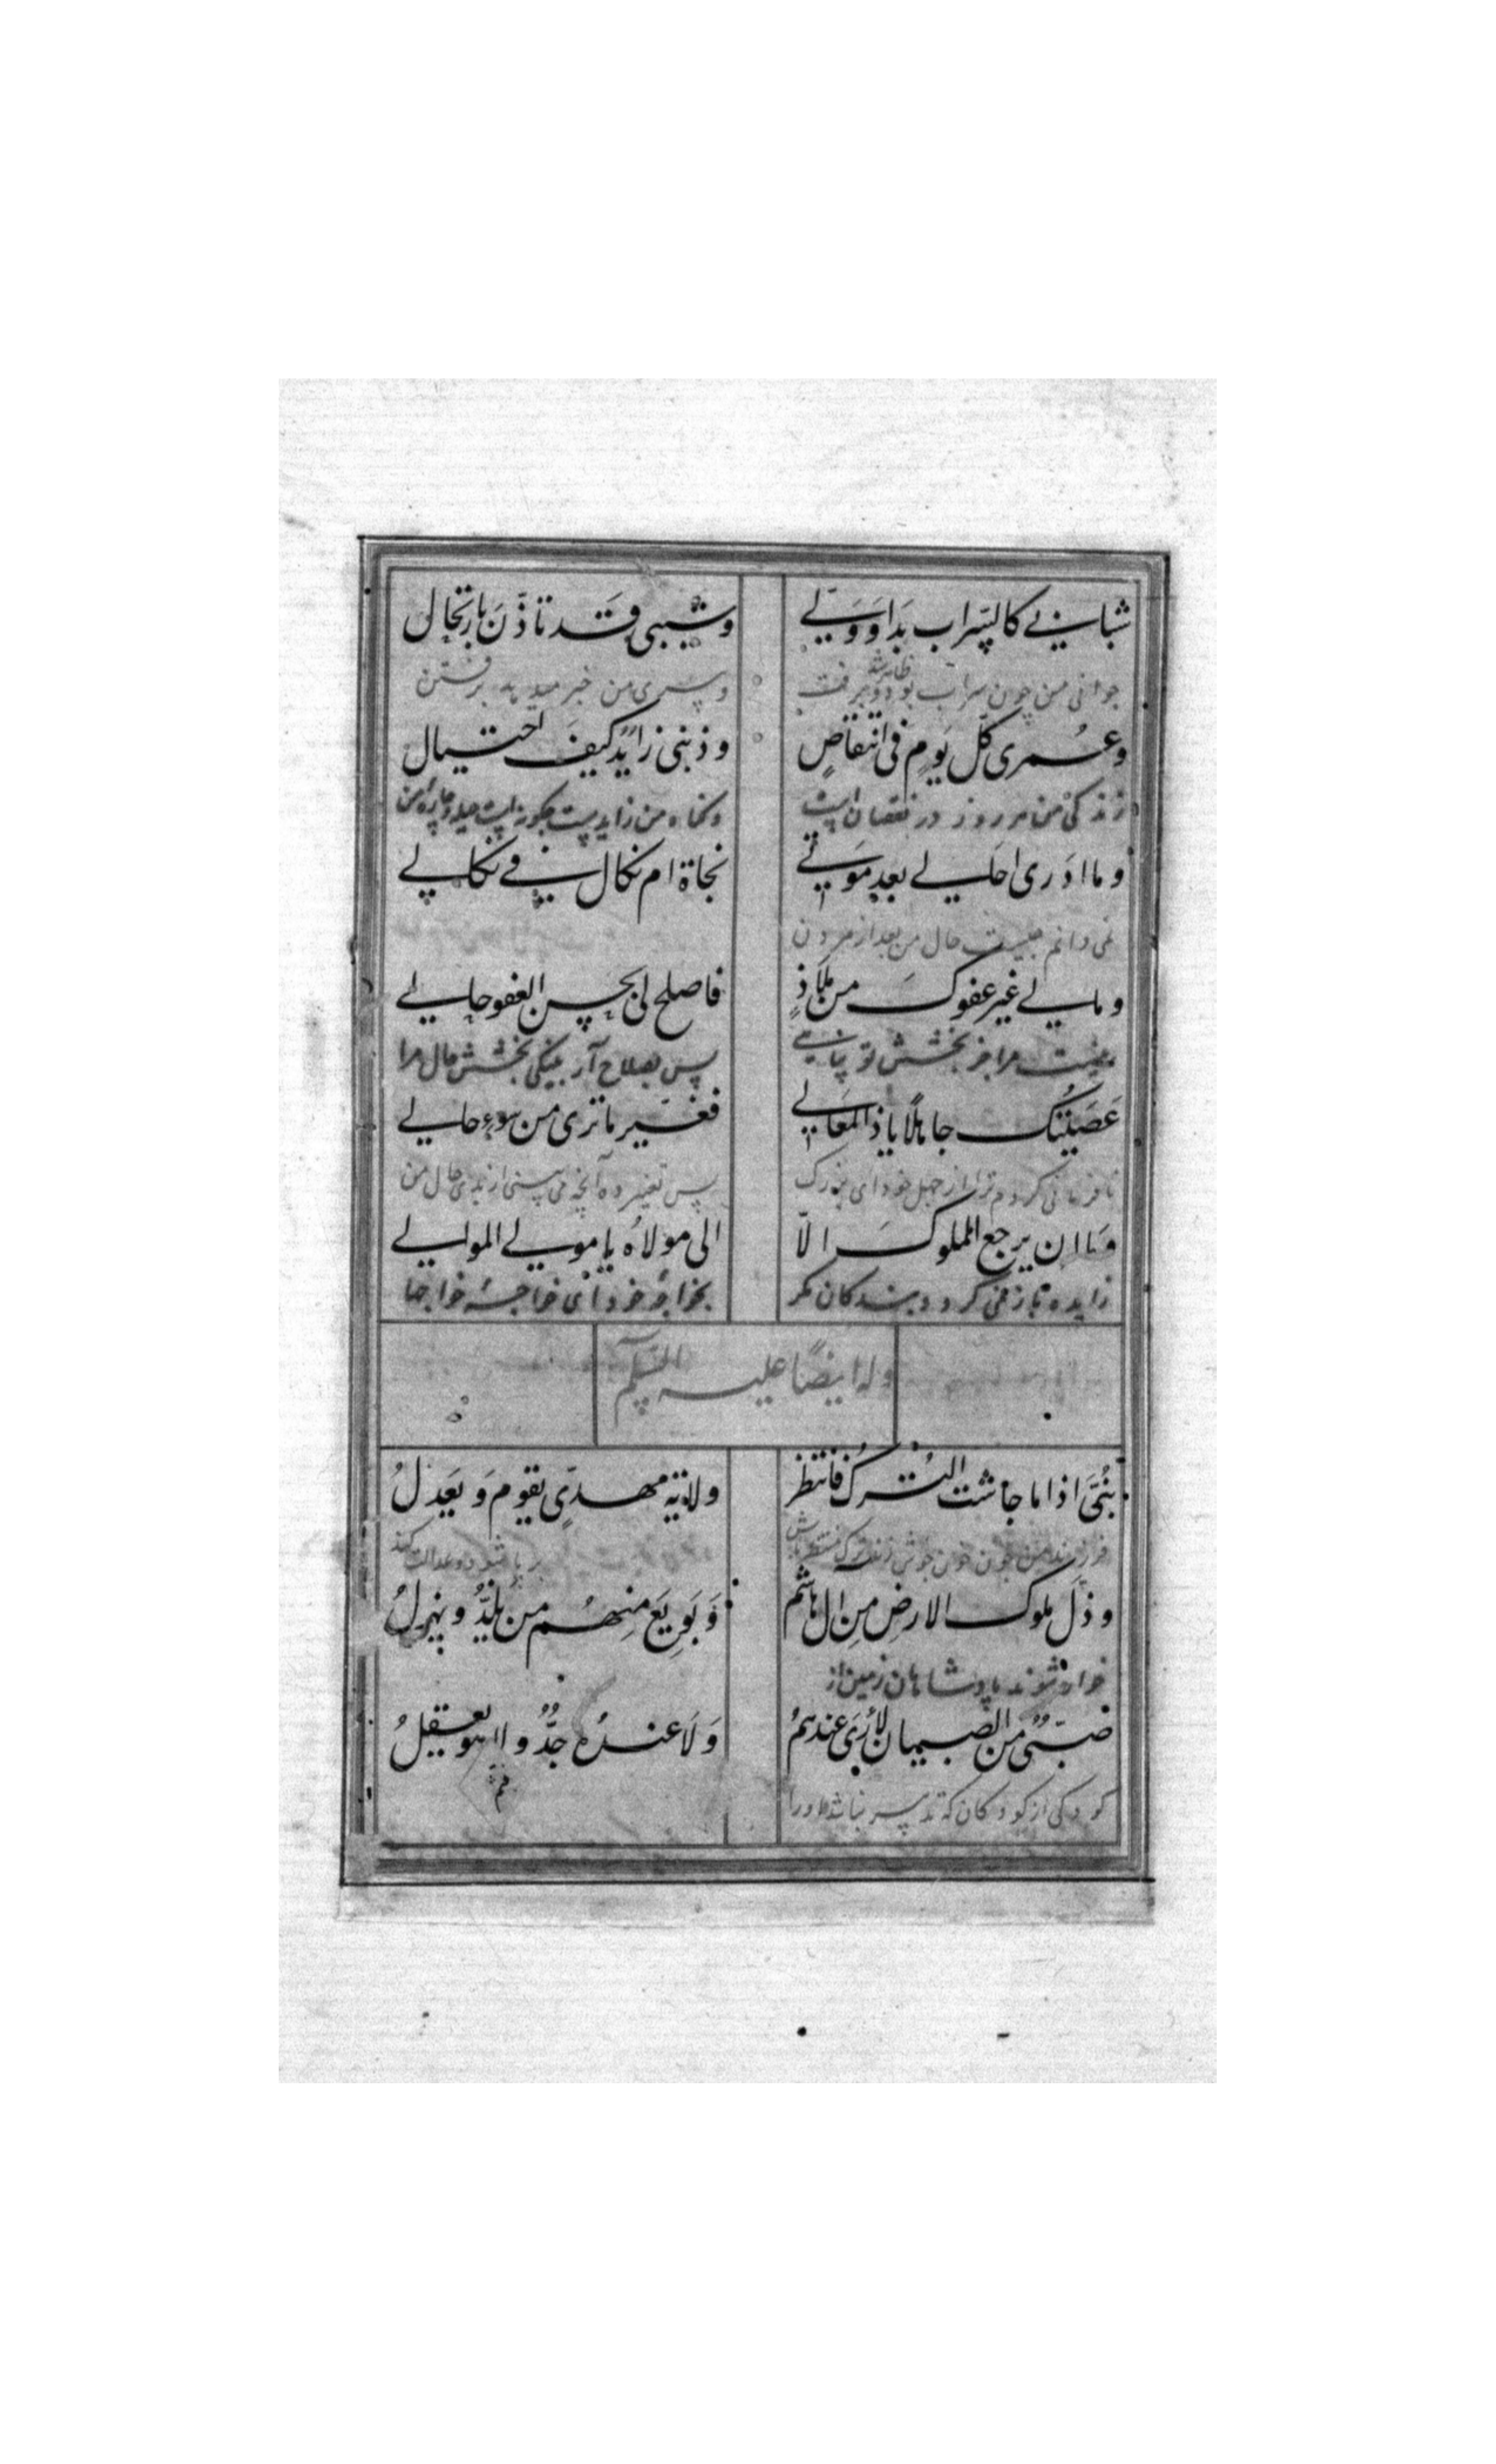 شبابي كالسّراب بدَا وَوَلّي وشيبى قَد تأذّنَ بارتحال
جوانی من چون سراب بود و برفت وپیری من خبر میدهد برفتن
ظاهر شد
وعُمرى كلّ يَومٍ فى انتقاصٍ وذنبى زايدٌ كيفَ احتيال
زندگی من هر روز در نقصان است وگناه من زایدست چگونه است حیله و چاره من
وما ادَرى احالي بعد موتي نجاة ام نكال في نكالي
نمی دانم چیست حال من بعد از مردن
وما لي غير عفوكَ من ملاذٍ فاصلح لى بحسن العفو حالي
نیست مرا جز بخشش تو پناهی پس بصلاح آر بنیکی بخشش حال مرا
عَصَيتُك جاهلًا يا ذا المعَالي فغيّر ما ترى من سوء حالي
نافرمانی کردم ترا از جهل خود ای بزرگ پس تغییر ده آنچه می بینی از بدی حال من
وَما ان يرجع المملوكَ الّا الى مولاهُ يا مولي الموالي
باز نمی گردد بندگان مگر بخواجه خود ای خواجه خواجها
وله ايضًا عليه السّلام
بُنَيَّ اذا ما جاشت التُرك فانتظر ولاية مهدىٍّ يقوم وَيَعدلُ
فرزند من چون جوش زند ترک منتظر باش برپا شود و عدالت کند
وذلَ ملوك الارضِ مِن ال هاشم وَبَويَعَ مِنهُم من يلذُّ ويهزلُ
خوار شوند پادشاهان زمین از
صَبىٌّ مَن الصبيان لا رُىَ عندهمُ وَلَا عندهُ جدٌّ ولا هو يعقلُ
کودکی از کودکان که تدبیر نباشد او را